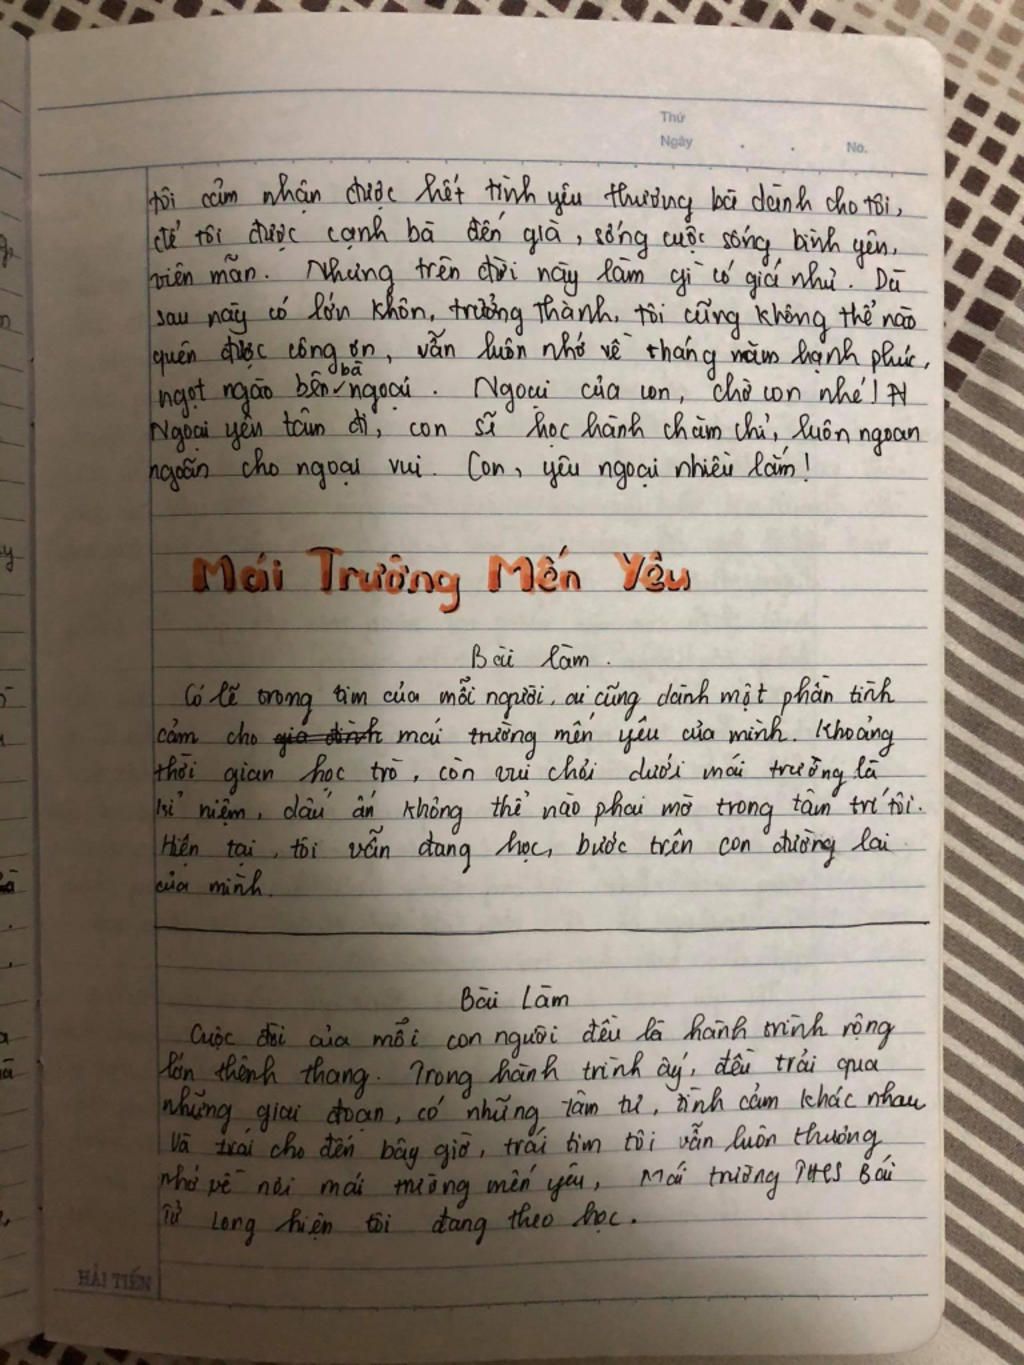 Thứ
Ngày . . No.
tôi cảm nhận được hết tình yêu thương bà dành cho tôi,
để tôi được cạnh bà đến già, sống cuộc sống bình yên,
viên mãn. Nhưng trên đời này làm gì có giá như. Dù
sau này có lớn khôn, trưởng thành, tôi cũng không thể nào
quên được công ơn, vẫn luôn nhớ về tháng năm hạnh phúc,
ngọt ngào bên bà ngoại. Ngoại của con, chờ con nhé!
Ngoại yên tâm đi, con sẽ học hành chăm chỉ, luôn ngoan
ngoãn cho ngoại vui. Con, yêu ngoại nhiều lắm!
Mái Trường Mến Yêu
Bài làm.
Có lẽ trong tim của mỗi người, ai cũng dành một phần tình
cảm cho gia đình mái trường mến yêu của mình. Khoảng
thời gian học trò, còn vui chơi dưới mái trường là
kỉ niệm, dấu ấn không thể nào phai mờ trong tâm trí tôi.
Hiện tại, tôi vẫn đang học, bước trên con đường lai
của mình.
Bài Làm
Cuộc đời của mỗi con người đều là hành trình rộng
lớn thênh thang. Trong hành trình ấy, đều trải qua
những giai đoạn, có những tâm tư, tình cảm khác nhau
Và trái cho đến bây giờ, trái tim tôi vẫn luôn thương
nhớ về nơi mái trường mến yêu, Mái trường THCS Bái
Tử Long hiện tôi đang theo học.
HẢI TIẾN